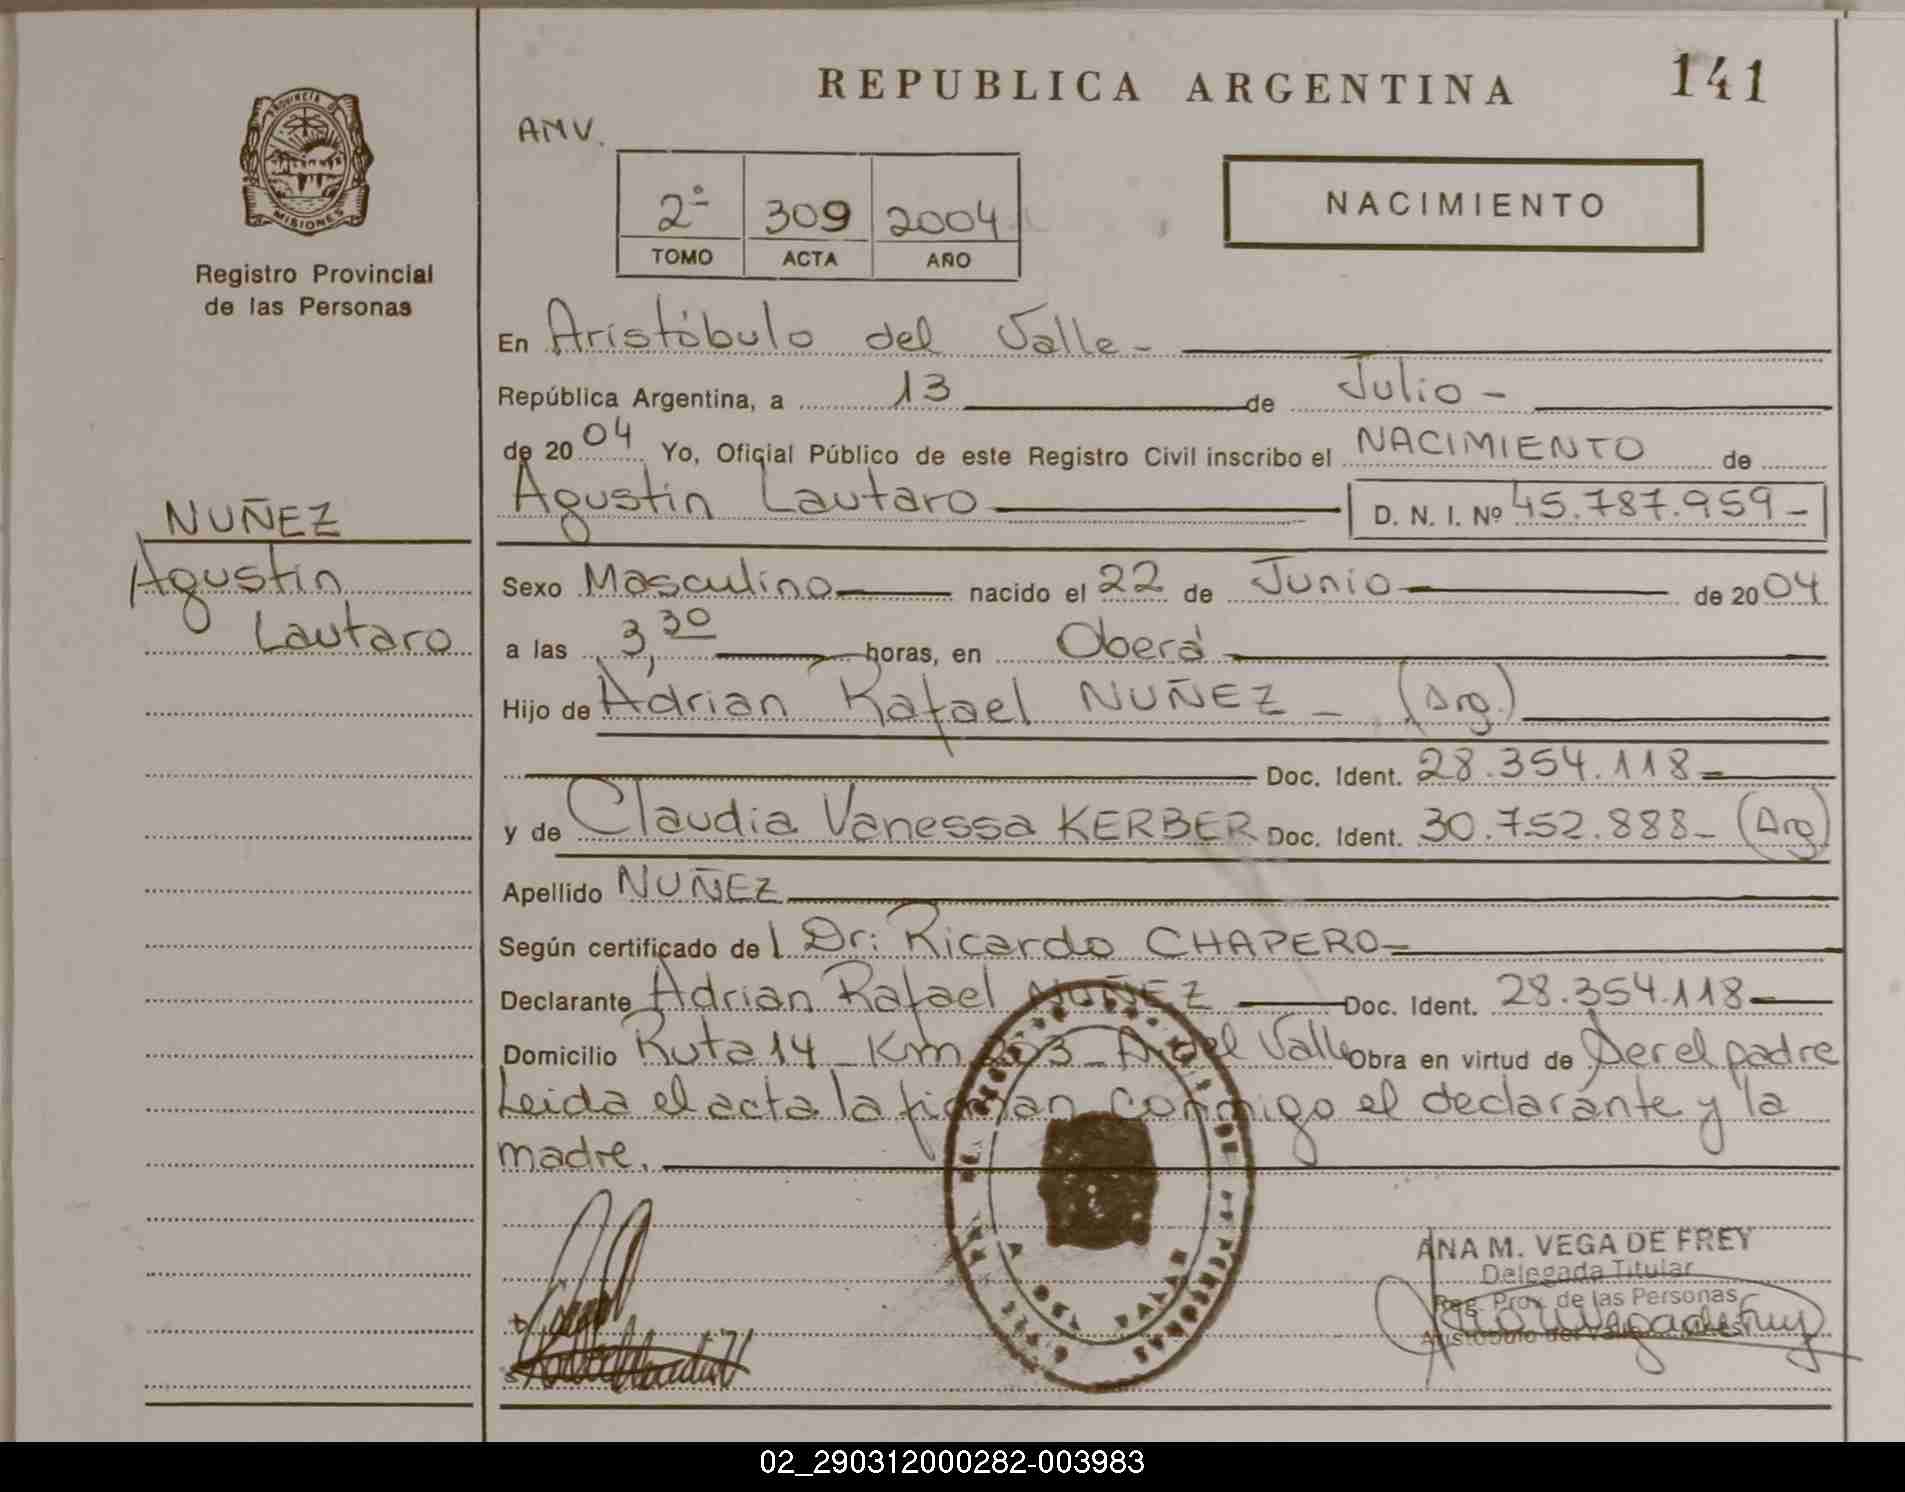 REPUBLICA ARGENTINA
141
PROVINCIA DE
MISIONES
Registro Provincial
de las Personas
AMV.
2º 309 2004
TOMO ACTA AÑO
NACIMIENTO
En Aristóbulo del Valle-
República Argentina, a 13 de Julio-
de 2004 Yo, Oficial Público de este Registro Civil inscribo el NACIMIENTO de
Agustin Lautaro D. N. I. Nº 45.787.959-
NUÑEZ
Agustin
Lautaro
Sexo Masculino nacido el 22 de Junio de 2004
a las 3,30 horas, en Oberá
Hijo de Adrian Rafael NUÑEZ - (Arg.)
Doc. Ident. 28.354.118-
y de Claudia Vanessa KERBER Doc. Ident. 30.752.888- (Arg)
Apellido NUÑEZ
Según certificado del Dr: Ricardo CHAPERO-
Declarante Adrian Rafael NUÑEZ Doc. Ident. 28.354.118-
Domicilio Ruta 14 - Km - A. del Valle Obra en virtud de Ser el padre
Leida el acta la firman conmigo el declarante y la
madre.
ANA M. VEGA DE FREY
Delegada Titular
Reg. Prov. de las Personas
Aristóbulo del Valle
02_290312000282-003983